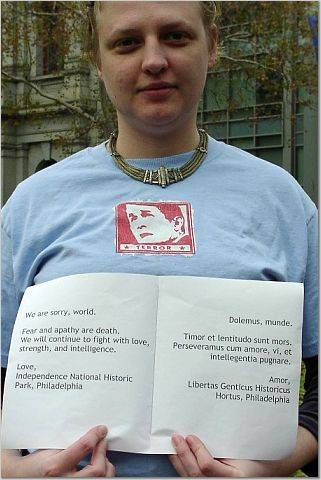 ★ TERROR ★
We are sorry, world.
Fear and apathy are death.
We will continue to fight with love,
strength, and intelligence.
Love,
Independence National Historic
Park, Philadelphia
Dolemus, munde.
Timor et lentitudo sunt mors.
Perseveramus cum amore, vi, et
intellegentia pugnare.
Amor,
Libertas Genticus Historicus
Hortus, Philadelphia